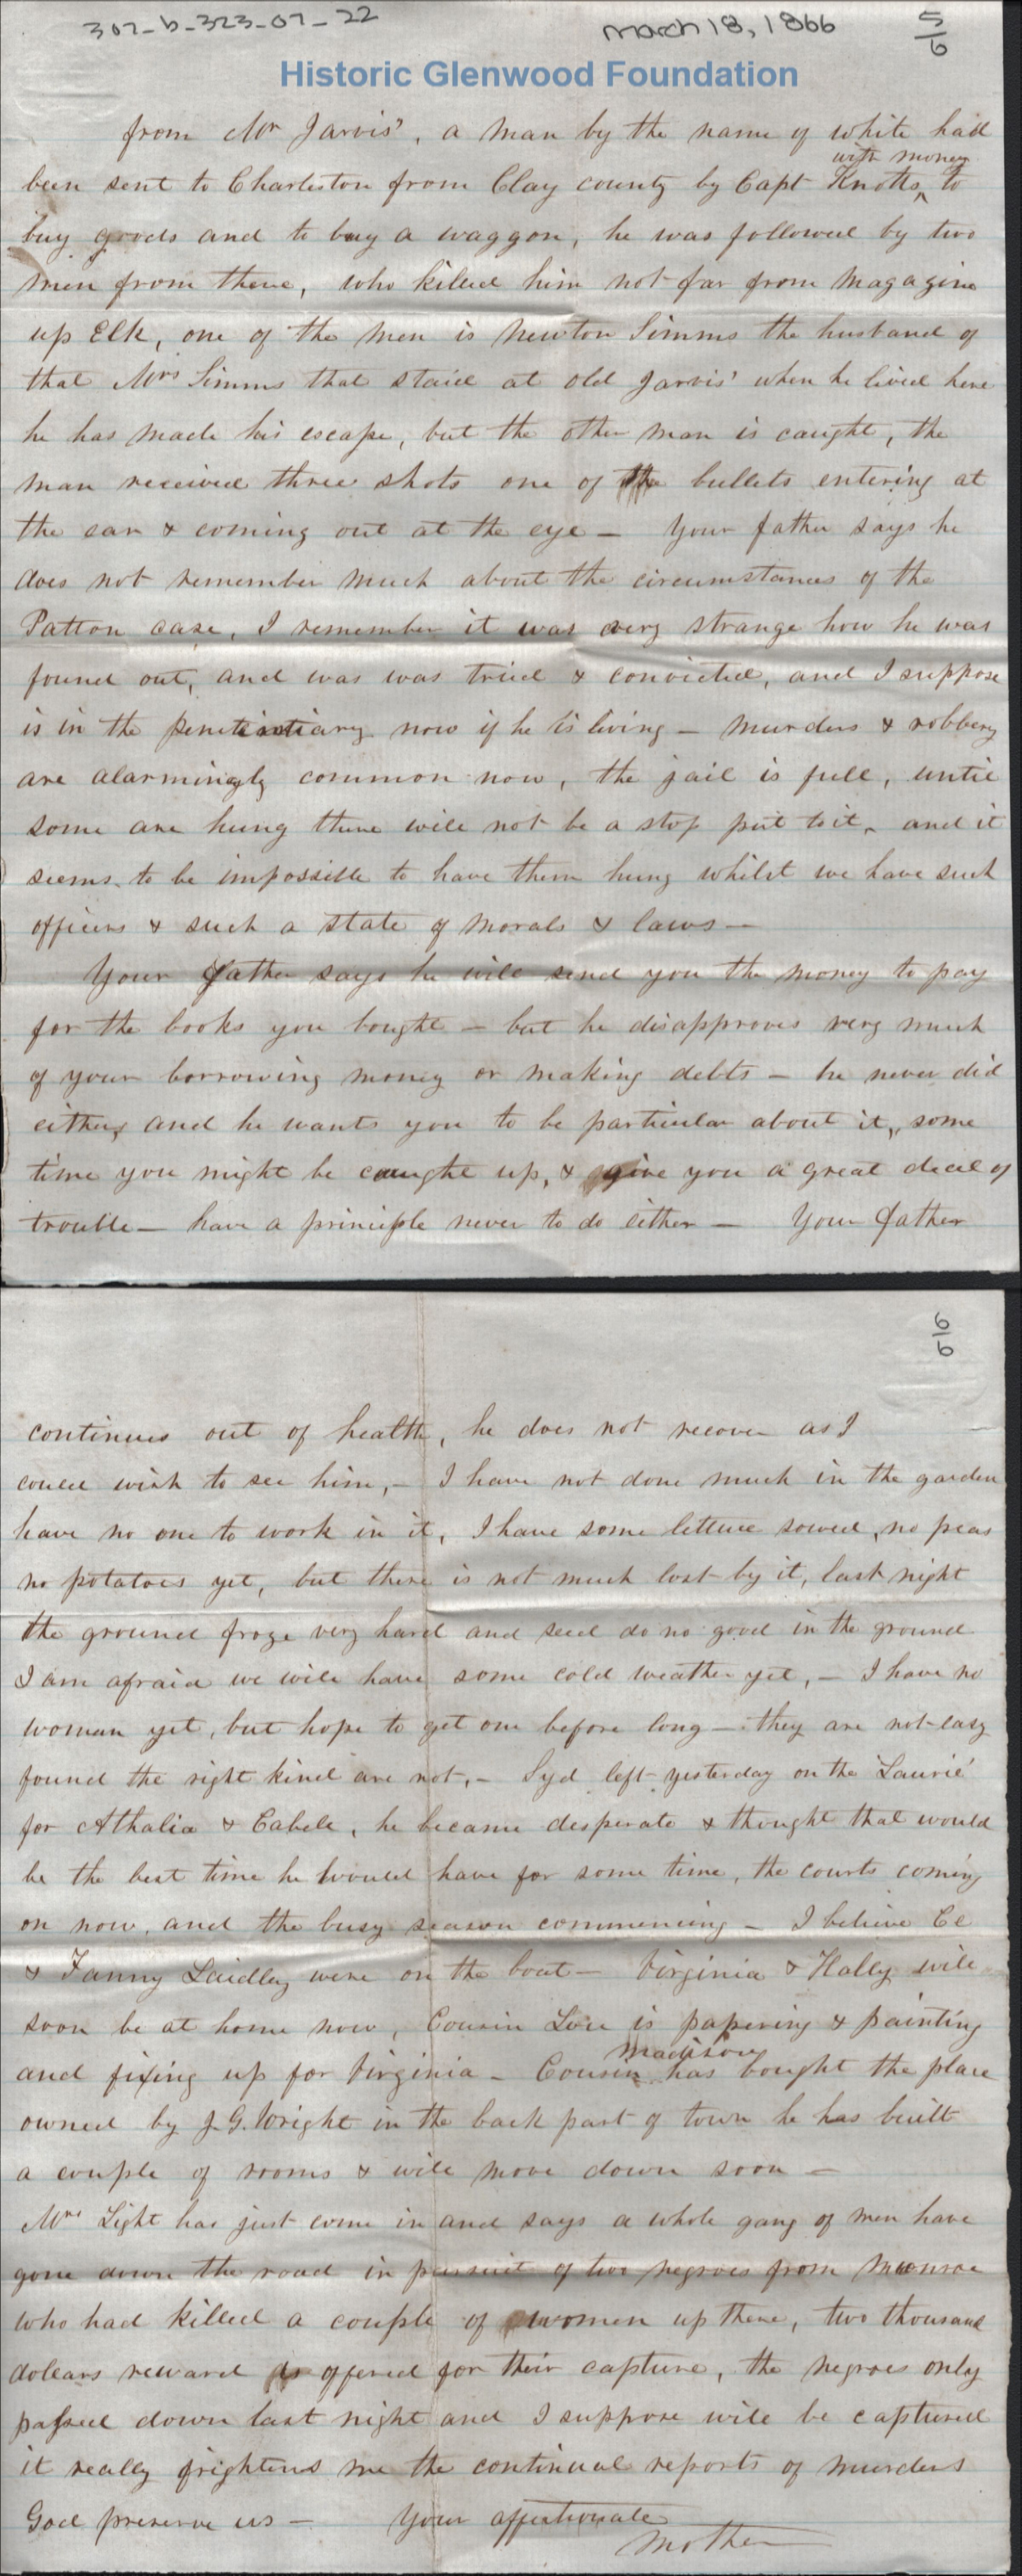 307-b-323-07-22
March 18, 1866
5/6
Historic Glenwood Foundation
from Mr Jarvis', a man by the name of white had
with money
been sent to Charleston from Clay county by Capt Knotts, to
buy goods and to buy a waggon, he was followed by two
men from there, who killed him not far from Magazine
up Elk, one of the men is Newton Simms the husband of
that Mrs Simms that staid at old Jarvis' when he lived here
he has made his escape, but the other man is caught, the
man received three shots one of the bullets entering at
the ear & coming out at the eye — Your father says he
does not remember much about the circumstances of the
Patton case, I remember it was very strange how he was
found out, and was was tried & convicted, and I suppose
is in the penitentiary now if he is living — murders & robbery
are alarmingly common now, the jail is full, until
some are hung there will not be a stop put to it, and it
seems to be impossible to have them hung whilst we have such
officers & such a state of morals & laws —
Your father says he will send you the money to pay
for the books you bought — but he disapproves very much
of your borrowing money or making debts — he never did
either, and he wants you to be particular about it, some
time you might be caught up, & give you a great deal of
trouble — have a principle never to do either — Your father
6/6
continues out of health, he does not recover as I
could wish to see him, — I have not done much in the garden
have no one to work in it, I have some lettuce sowed, no peas
no potatoes yet, but there is not much lost by it, last night
the ground froze very hard and seed do no good in the ground
I am afraid we will have some cold weather yet, — I have no
woman yet, but hope to get one before long — they are not easy
found the right kind are not, — Syd left yesterday on the 'Laurie'
for Athalia & Cabell, he became desperate & thought that would
be the best time he would have for some time, the courts coming
on now, and the busy season commencing — I believe
& Fanny Laidley were on the boat — Virginia & Hally will
soon be at home now, Cousin Lou is papering & painting
madison
and fixing up for Virginia — Cousin has bought the place
owned by J. G. Wright in the back part of town he has built
a couple of rooms & will move down soon —
Mrs Light has just come in and says a whole gang of men have
gone down the road in pursuit of two negroes from Monroe
who had killed a couple of women up there, two thousand
dollars reward is offered for their capture, the negroes only
passed down last night and I suppose will be captured
it really frightens me the continual reports of murders
God preserve us — Your affectionate
Mother